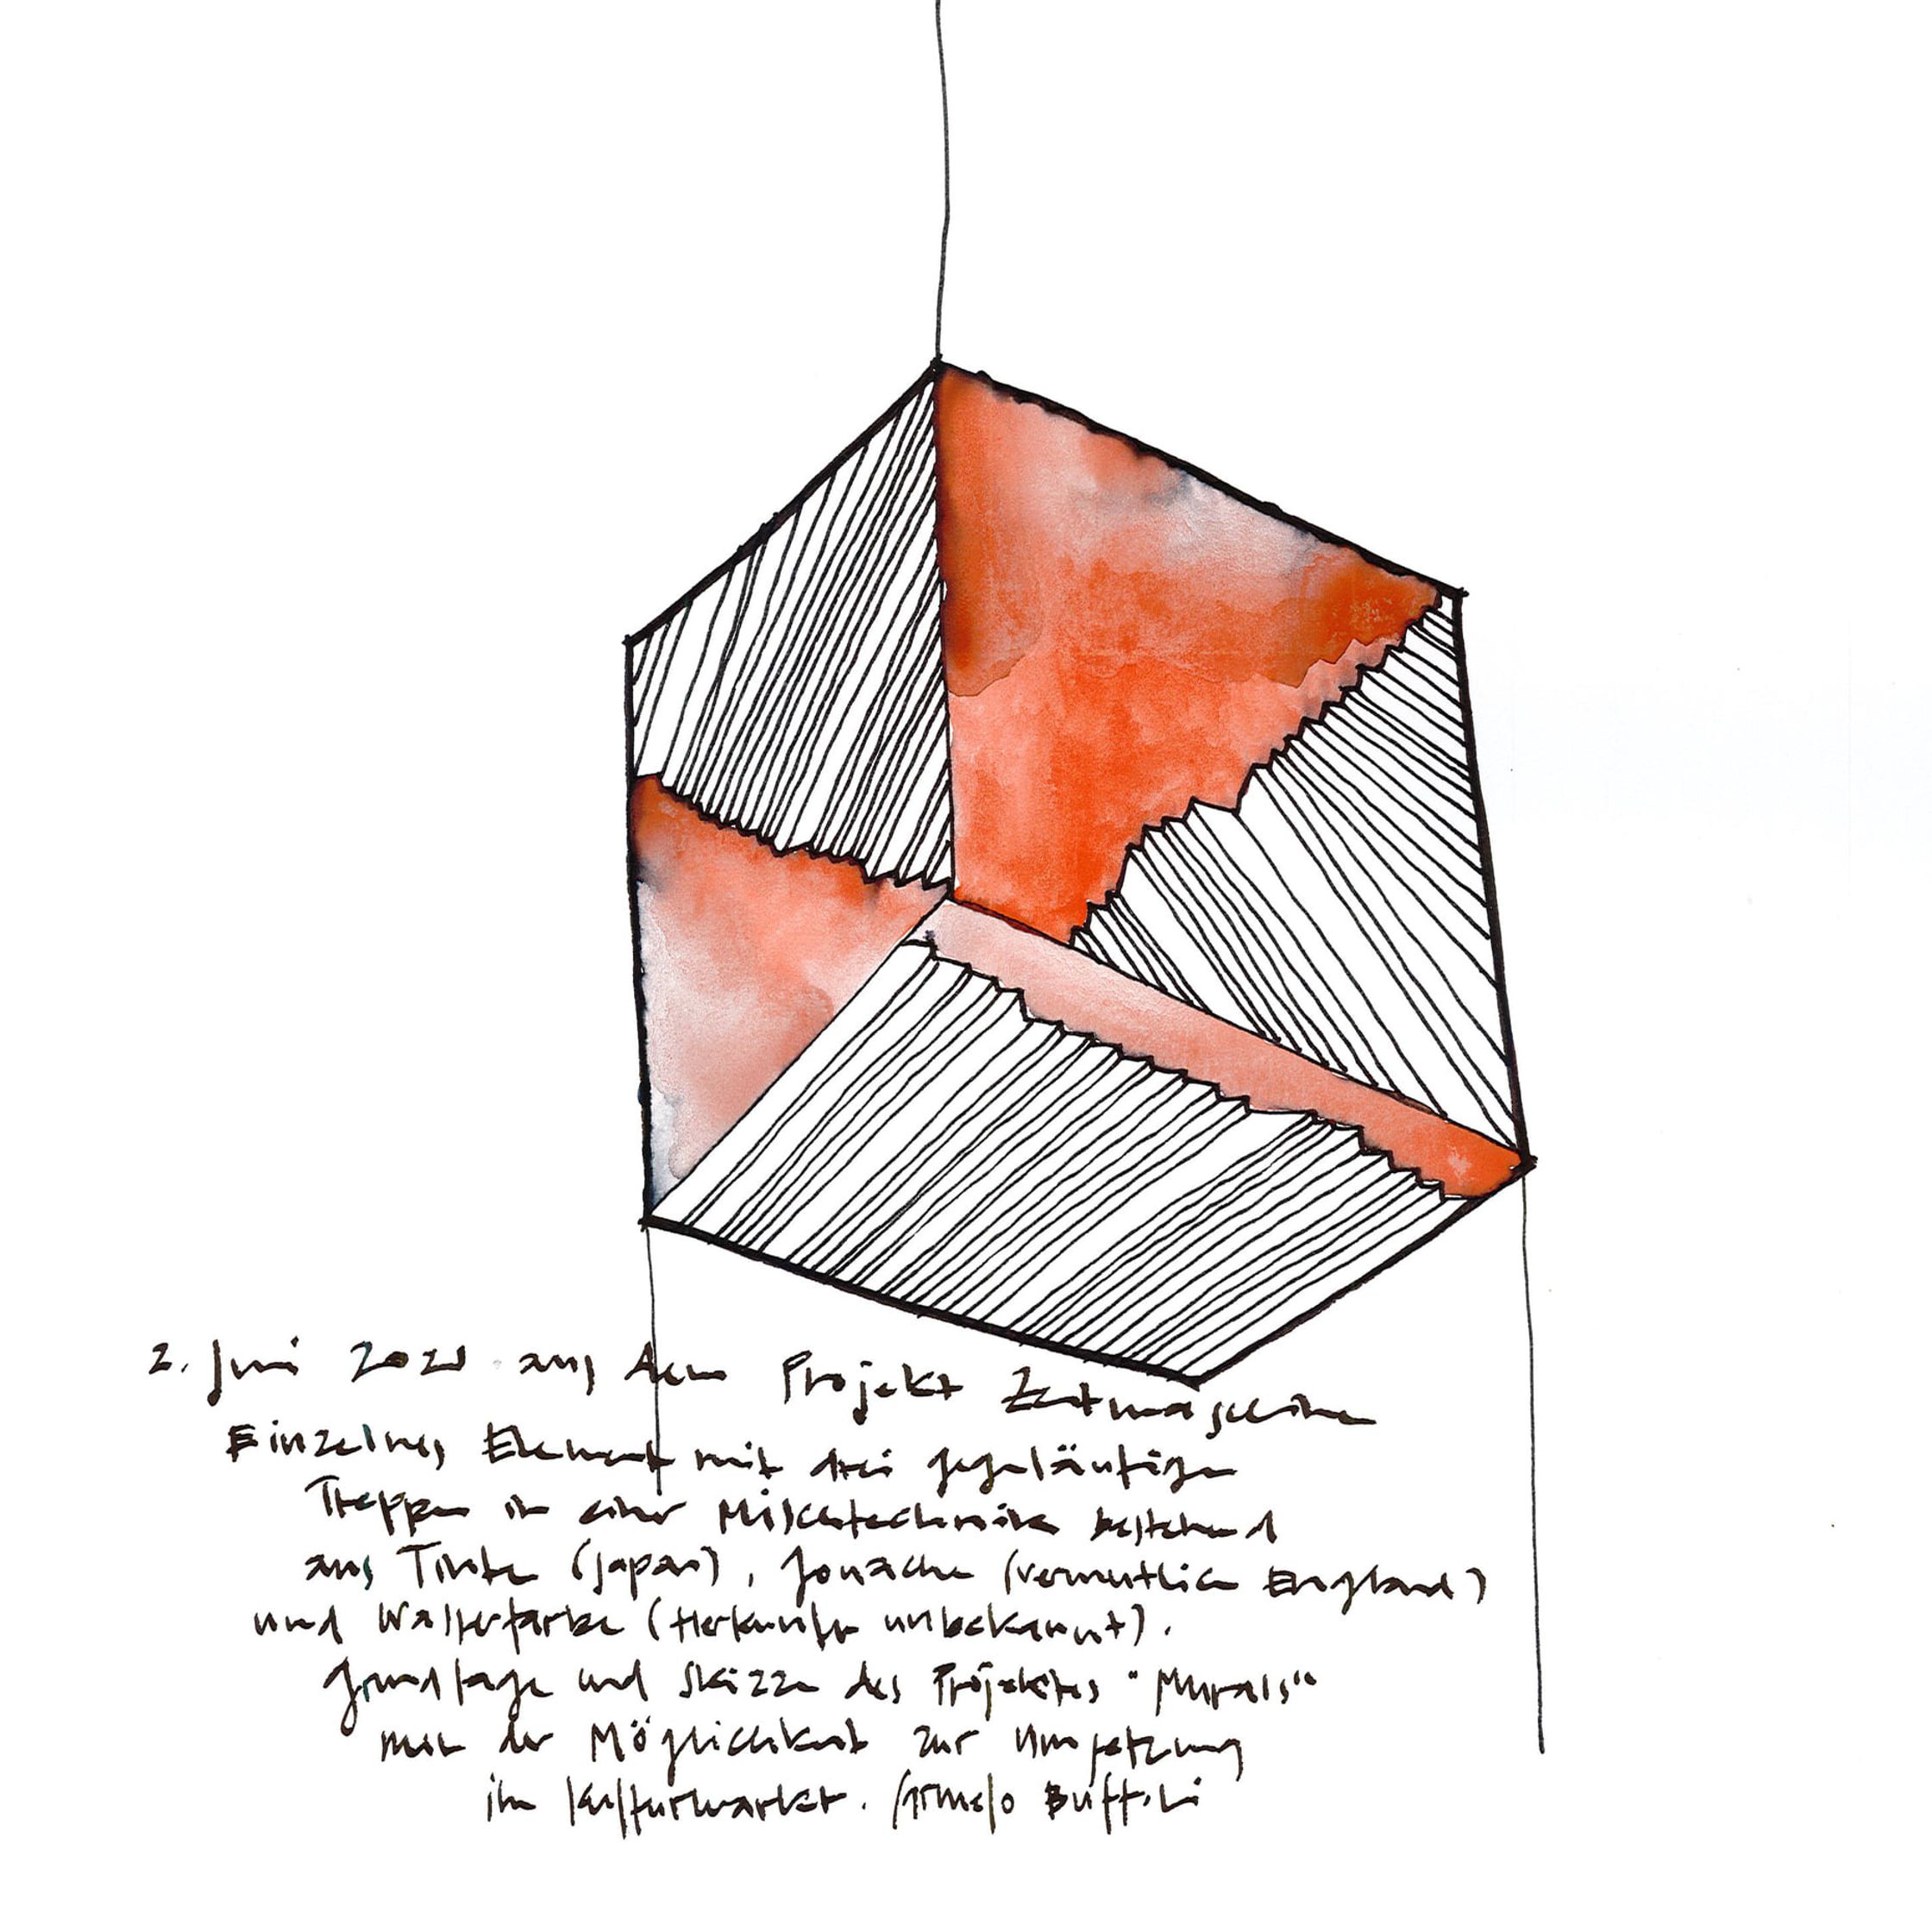 2. Juni 2020 aus dem Projekt Zeitmaschine
Einzelnes Element mit drei gegeläufige
Treppen in einer Mischtechnik bestehend
aus Tinte (Japan), Gouache (vermutlich England)
und Wasserfarbe (Herkunft unbekannt).
Grundlage und Skizze des Projektes "Murals"
mit der Möglichkeit zur Umsetzung
im Kulturmarkt. Buffoli